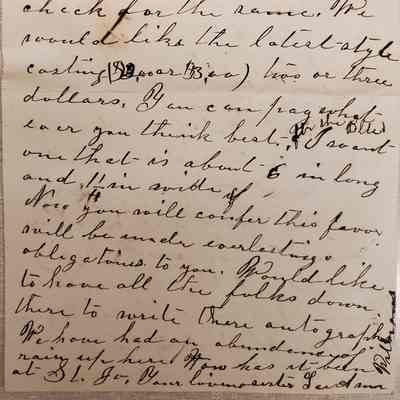 check for the same. We
would like the latest style
costing ($2.00 or $3.00) two or three
dollars. You can pay what
ever you think best. for the Bill I want
one that is about 6 in long
and 1½ in wide if
Now you will confer this favor
will be under everlasting
obligations to you. Would like
to have all the folks down
there to write there autographs
We have had an abundance of
rain up here How has it been
at St. Jo. Your loving sister